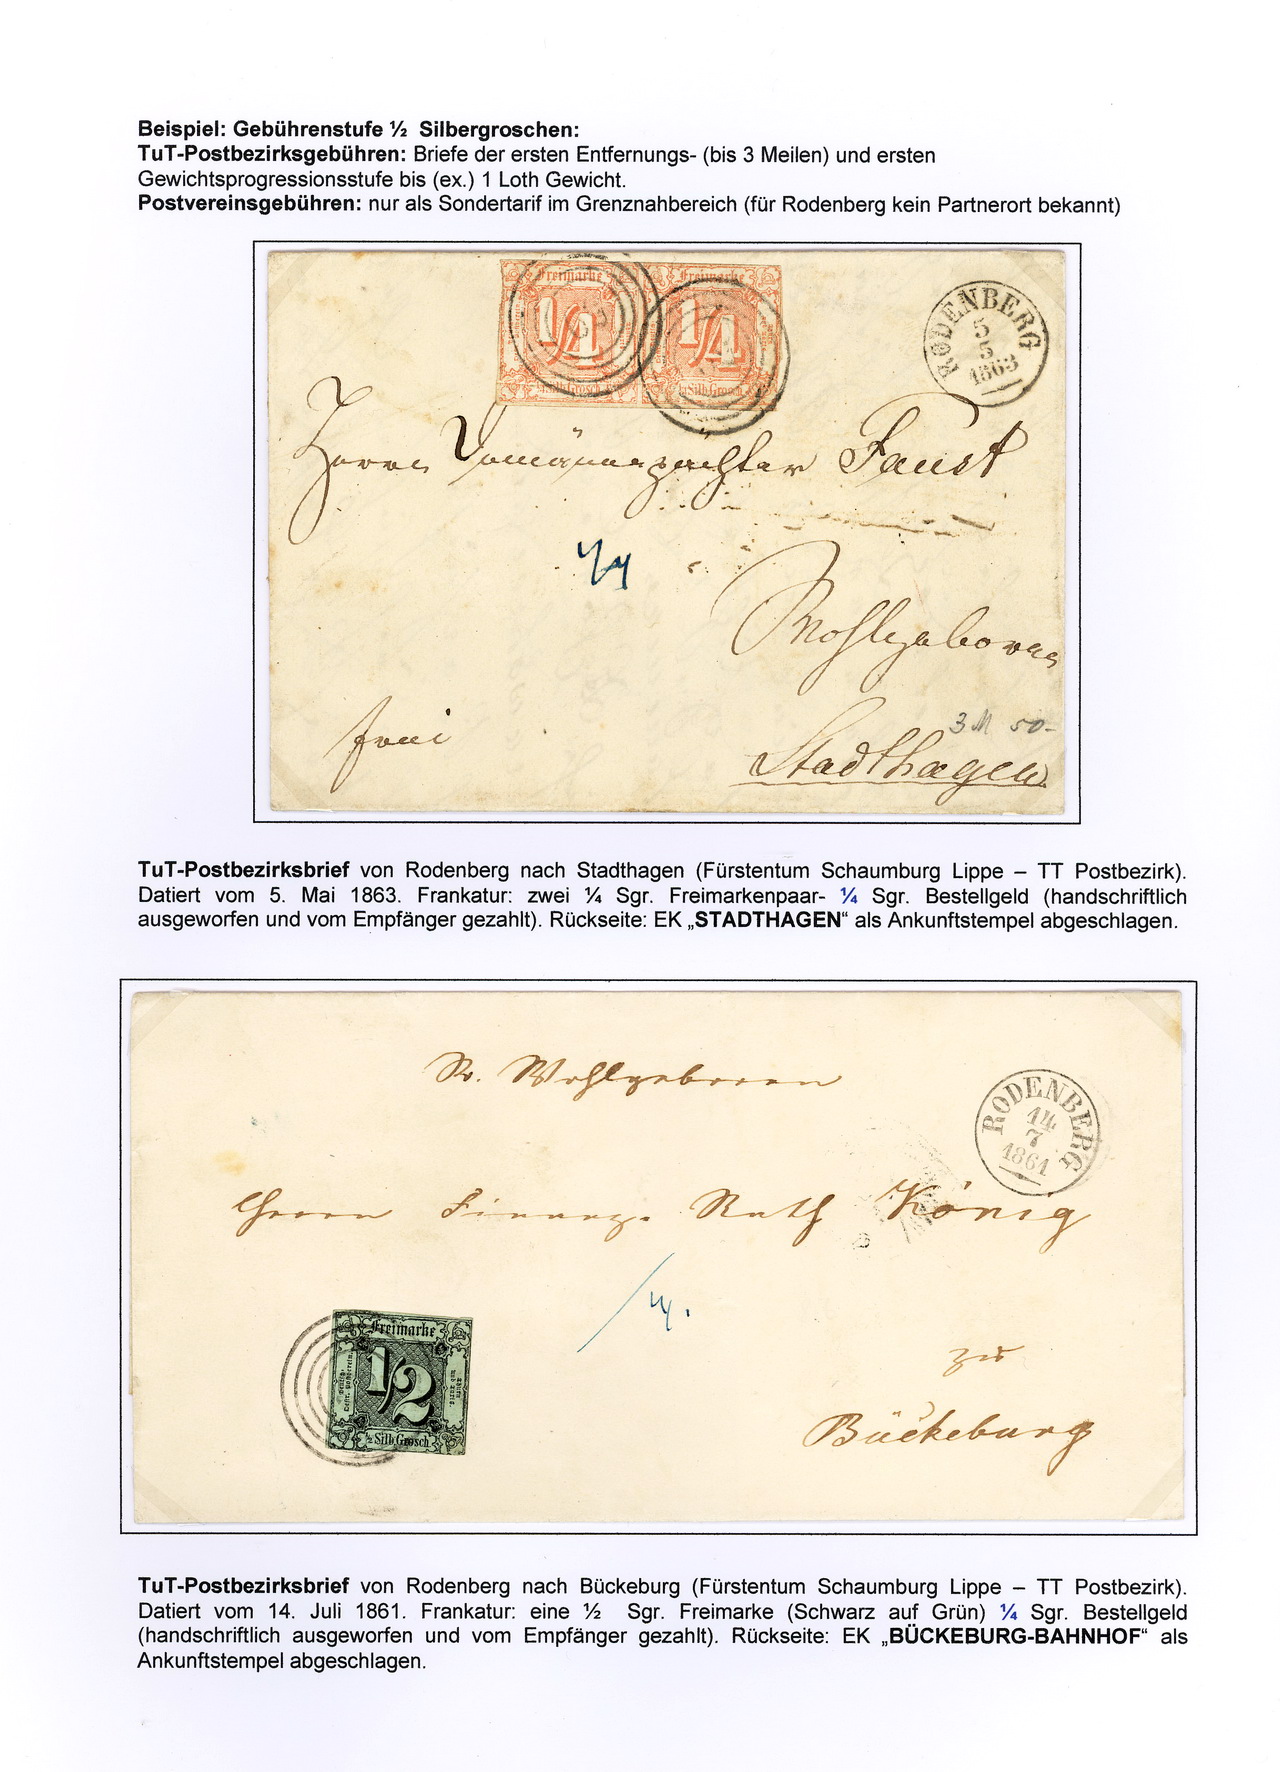 Beispiel: Gebührenstufe ½ Silbergroschen:
TuT-Postbezirksgebühren: Briefe der ersten Entfernungs- (bis 3 Meilen) und ersten
Gewichtsprogressionsstufe bis (ex.) 1 Loth Gewicht.
Postvereinsgebühren: nur als Sondertarif im Grenznahbereich (für Rodenberg kein Partnerort bekannt)
Freimarke
1/4
¼ Silb.Grosch.
Freimarke
1/4
¼ Silb.Grosch.
RODENBERG
5
5
1863
Herrn Domänenpächter Faust
1/4
Wohlgeboren
3 M 50-
frei
Stadthagen
TuT-Postbezirksbrief von Rodenberg nach Stadthagen (Fürstentum Schaumburg Lippe – TT Postbezirk).
Datiert vom 5. Mai 1863. Frankatur: zwei ¼ Sgr. Freimarkenpaar- ¼ Sgr. Bestellgeld (handschriftlich
ausgeworfen und vom Empfänger gezahlt). Rückseite: EK „STADTHAGEN“ als Ankunftstempel abgeschlagen.
Sr. Wohlgeboren
RODENBERG
14
7
1861
Herrn Finanz-Rath König
/ 1/4.
Freimarke
1/2
½ Silb.Grosch.
zu
Bückeburg
TuT-Postbezirksbrief von Rodenberg nach Bückeburg (Fürstentum Schaumburg Lippe – TT Postbezirk).
Datiert vom 14. Juli 1861. Frankatur: eine ½ Sgr. Freimarke (Schwarz auf Grün) ¼ Sgr. Bestellgeld
(handschriftlich ausgeworfen und vom Empfänger gezahlt). Rückseite: EK „BÜCKEBURG-BAHNHOF“ als
Ankunftstempel abgeschlagen.